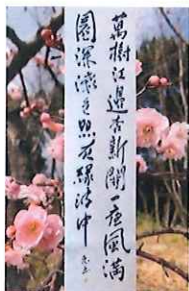 萬樹江邊杏新開一夜風満
園深淺色照在緑波中